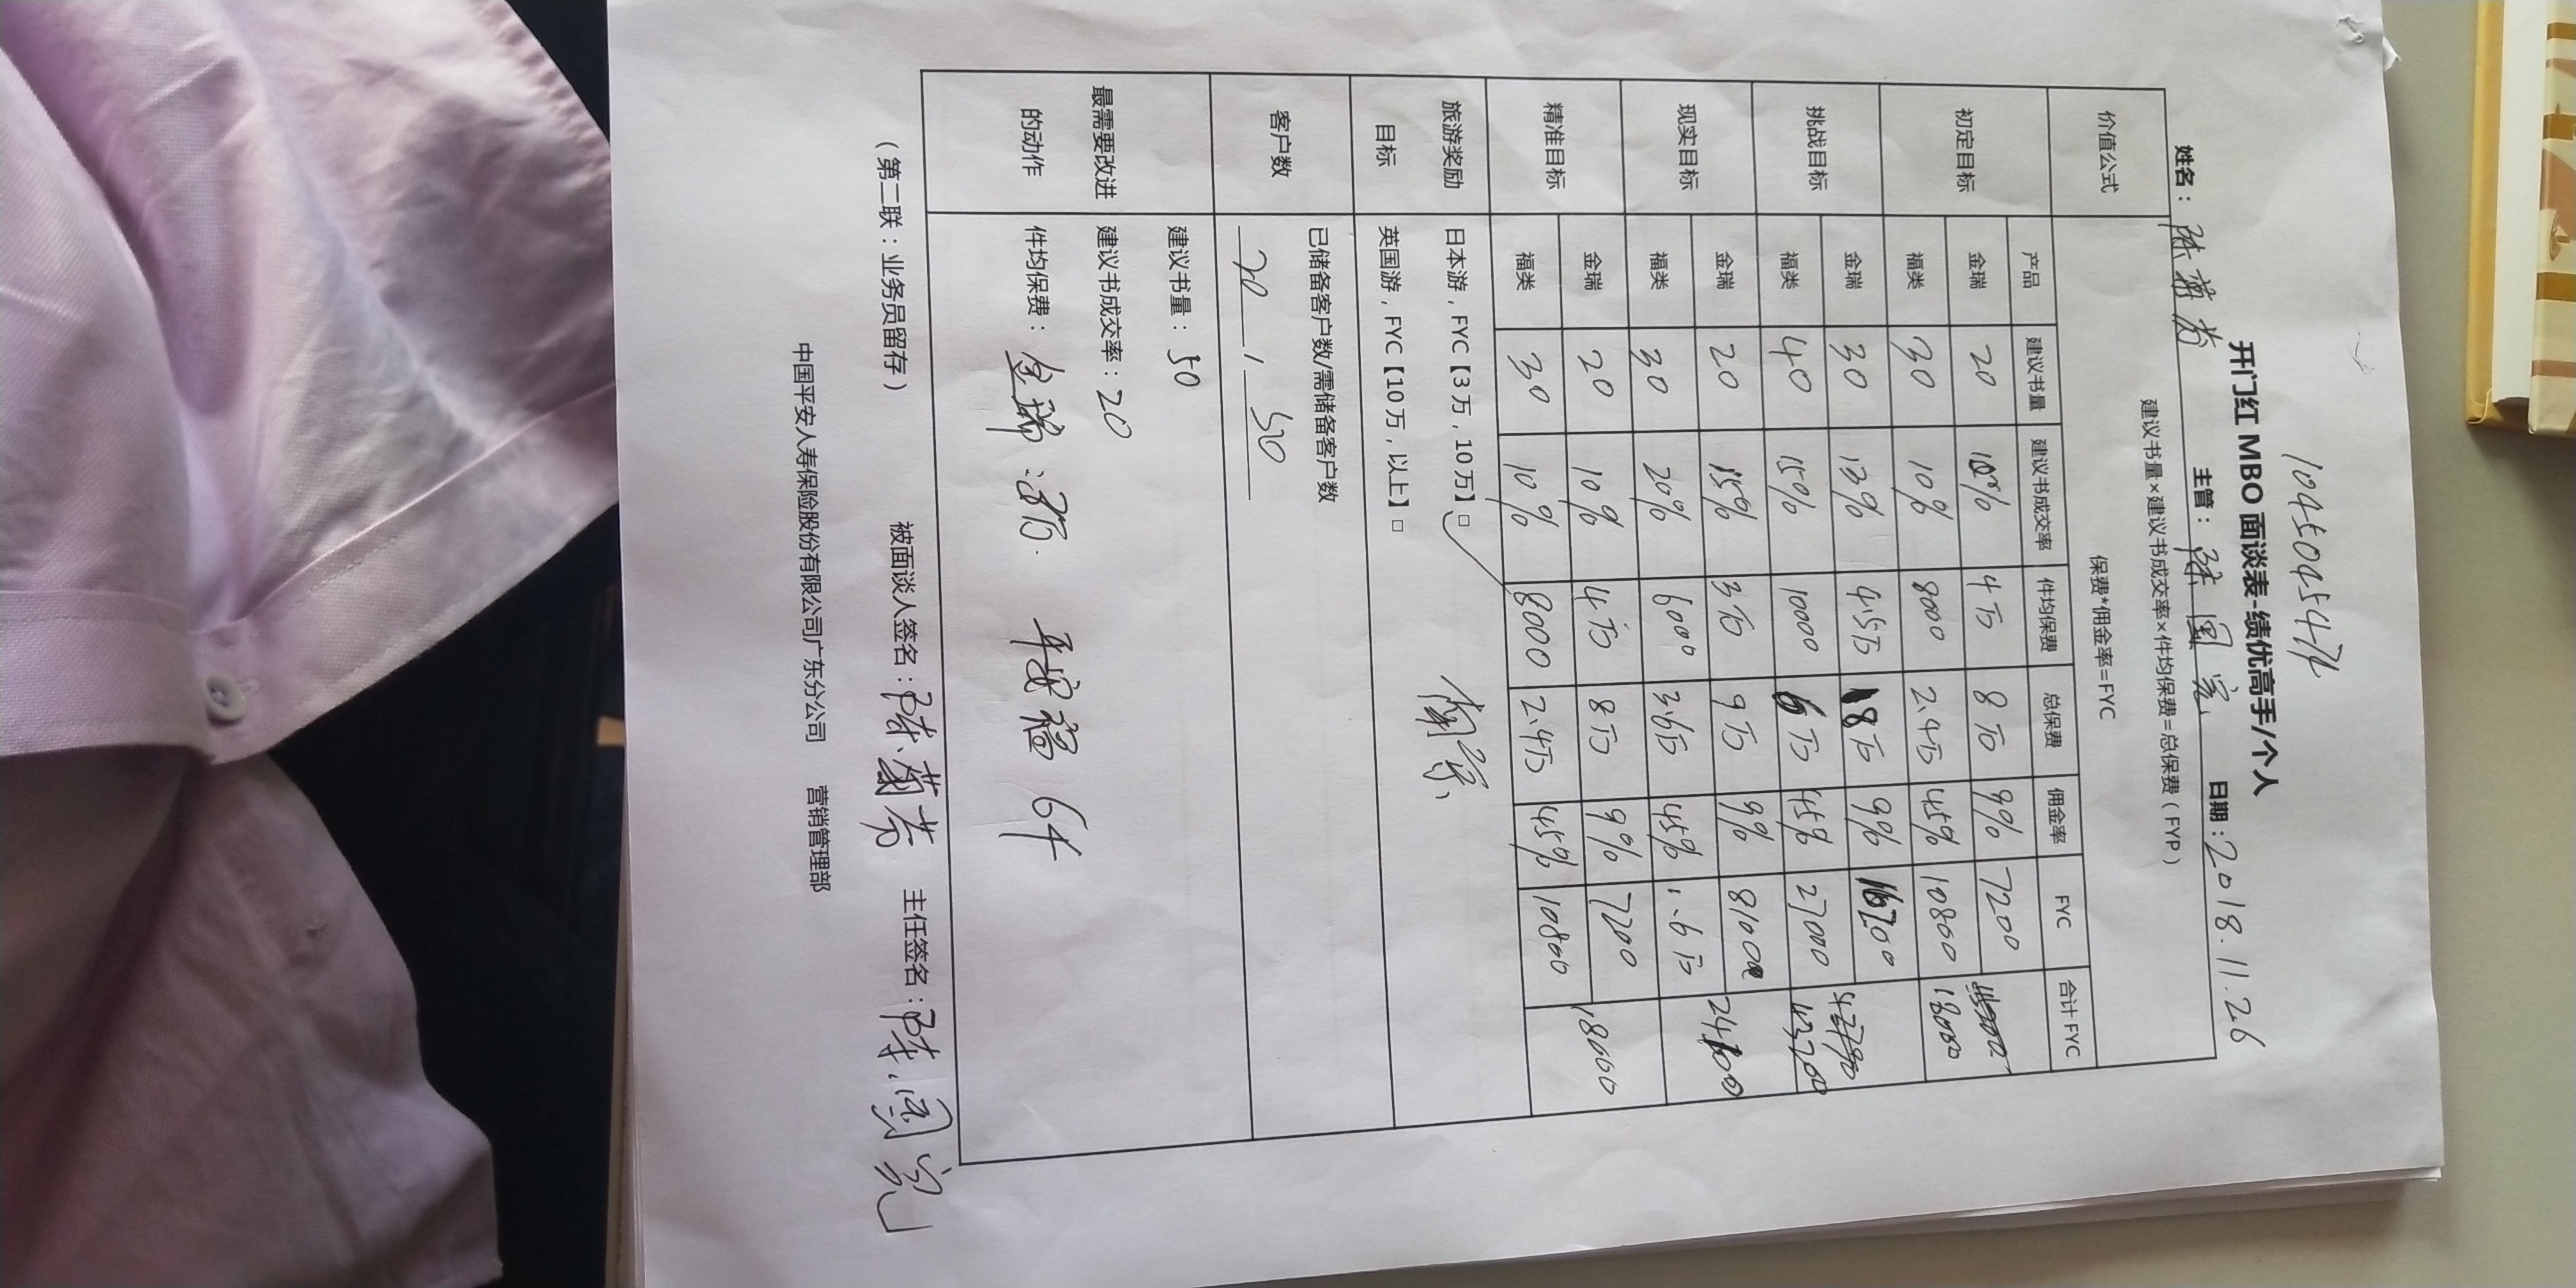 1045045474
开门红 MBO 面谈表-绩优高手/个人
姓名：陈菊芳 主管：陈国宪 日期：2018.11.26
价值公式 建议书量×建议书成交率×件均保费=总保费（FYP）
保费*佣金率=FYC
产品 建议书量 建议书成交率 件均保费 总保费 佣金率 FYC 合计FYC
初定目标 金瑞 20 10% 4万 8万 9% 7200 18000
福类 30 10% 8000 2.4万 45% 10800
挑战目标 金瑞 30 13% 4.5万 18万 9% 16200 43200
福类 40 15% 10000 6万 45% 27000
现实目标 金瑞 20 15% 3万 9万 9% 8100 24100
福类 30 20% 6000 3.6万 45% 1.6万
精准目标 金瑞 20 10% 4万 8万 9% 7200 18000
福类 30 10% 8000 2.4万 45% 10800
旅游奖励
目标
日本游，FYC【3 万，10 万】□
英国游，FYC【10 万，以上】□
客户数 已储备客户数/需储备客户数
20 / 50
最需要改进
的动作
建议书量：50
建议书成交率：20
件均保费：金瑞 平安福 6件
（第二联：业务员留存） 被面谈人签名：陈菊芳 主任签名：陈国宪
中国平安人寿保险股份有限公司广东分公司 营销管理部